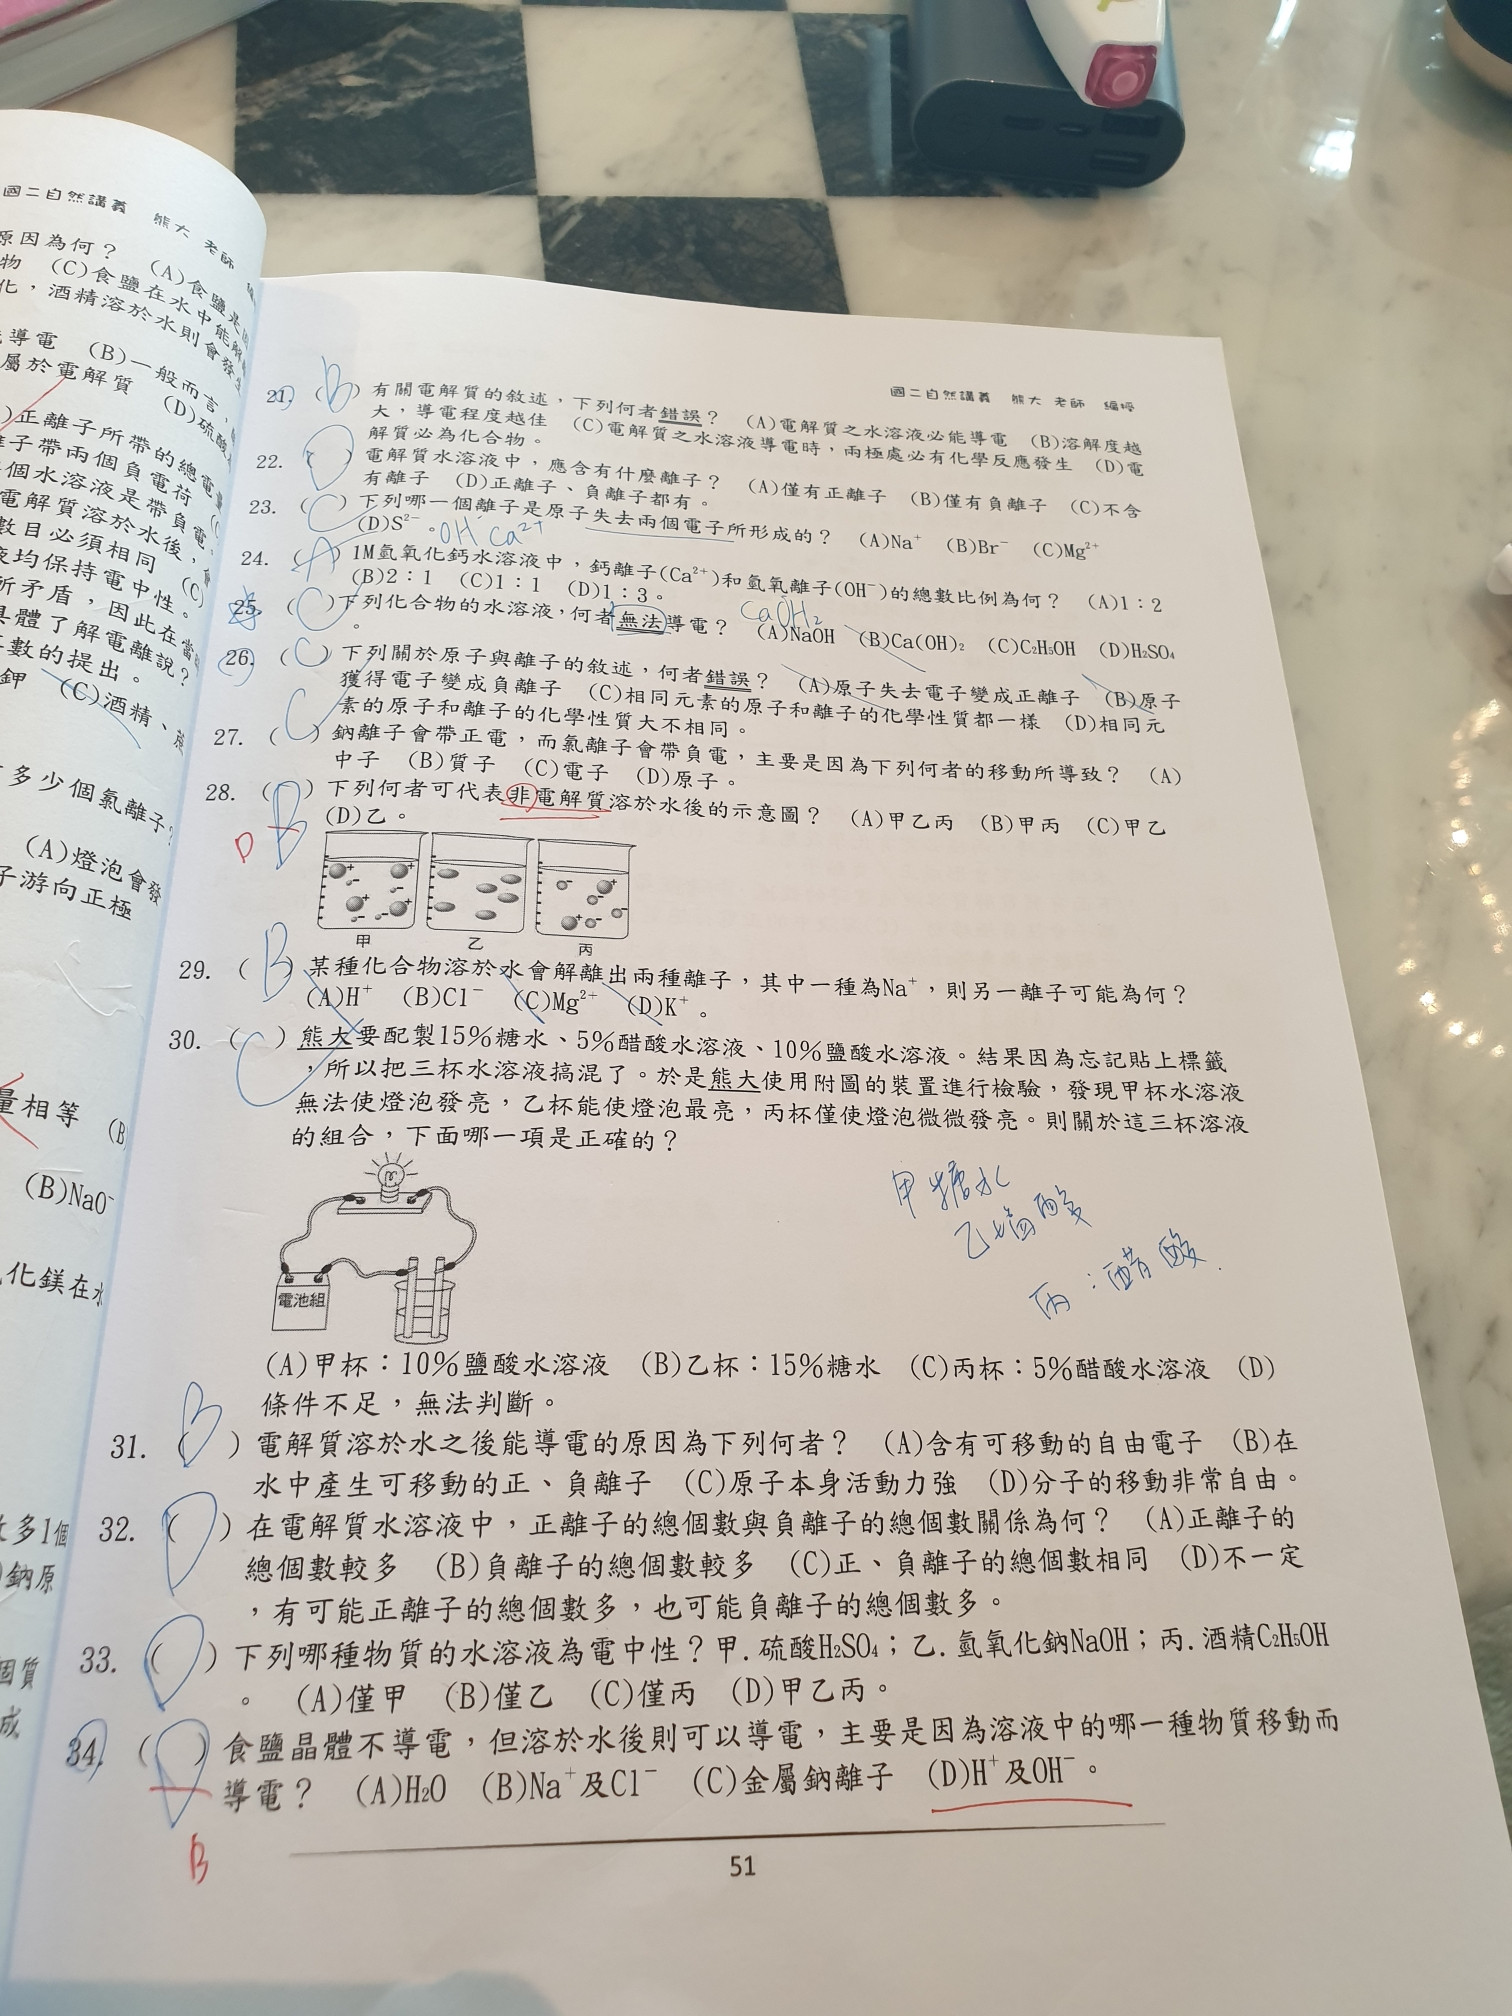 國二自然講義 熊大 老師
原因為何？ (A)食鹽是
物 (C)食鹽在水中能解
化，酒精溶於水則會發生
導電 (B)一般而言，
屬於電解質 (D)硫酸
)正離子所帶的總電量
離子帶兩個負電荷
個水溶液是帶負電。
電解質溶於水後，
數目必須相同 (C)
液均保持電中性。
所矛盾，因此在當
具體了解電離說？
數的提出。
鉀 (C)酒精、
多少個氯離子？
(A)燈泡會發
子游向正極
量相等 (B)
(B)NaO⁻
化鎂在水
多1個
)鈉原
個質
成
國二自然講義 熊大 老師 編授
21. (B) 有關電解質的敘述，下列何者錯誤？ (A)電解質之水溶液必能導電 (B)溶解度越
大，導電程度越佳 (C)電解質之水溶液導電時，兩極處必有化學反應發生 (D)電
解質必為化合物。
22. (D) 電解質水溶液中，應含有什麼離子？ (A)僅有正離子 (B)僅有負離子 (C)不含
有離子 (D)正離子、負離子都有。
23. (C) 下列哪一個離子是原子失去兩個電子所形成的？ (A)Na⁺ (B)Br⁻ (C)Mg²⁺
(D)S²⁻。
OH⁻ Ca²⁺
24. (A) 1M氫氧化鈣水溶液中，鈣離子(Ca²⁺)和氫氧離子(OH⁻)的總數比例為何？ (A)1：2
(B)2：1 (C)1：1 (D)1：3。
CaOH₂
25. (C) 下列化合物的水溶液，何者無法導電？ (A)NaOH (B)Ca(OH)₂ (C)C₂H₅OH (D)H₂SO₄
。
26. (C) 下列關於原子與離子的敘述，何者錯誤？ (A)原子失去電子變成正離子 (B)原子
獲得電子變成負離子 (C)相同元素的原子和離子的化學性質都一樣 (D)相同元
素的原子和離子的化學性質大不相同。
27. (C) 鈉離子會帶正電，而氯離子會帶負電，主要是因為下列何者的移動所導致？ (A)
中子 (B)質子 (C)電子 (D)原子。
28. (B) 下列何者可代表非電解質溶於水後的示意圖？ (A)甲乙丙 (B)甲丙 (C)甲乙
(D)乙。
D
甲 乙 丙
29. (B) 某種化合物溶於水會解離出兩種離子，其中一種為Na⁺，則另一離子可能為何？
(A)H⁺ (B)Cl⁻ (C)Mg²⁺ (D)K⁺。
30. (C) 熊大要配製15%糖水、5%醋酸水溶液、10%鹽酸水溶液。結果因為忘記貼上標籤
，所以把三杯水溶液搞混了。於是熊大使用附圖的裝置進行檢驗，發現甲杯水溶液
無法使燈泡發亮，乙杯能使燈泡最亮，丙杯僅使燈泡微微發亮。則關於這三杯溶液
的組合，下面哪一項是正確的？
甲糖水
丙：醋酸
電池組
(A)甲杯：10%鹽酸水溶液 (B)乙杯：15%糖水 (C)丙杯：5%醋酸水溶液 (D)
條件不足，無法判斷。
31. (B) 電解質溶於水之後能導電的原因為下列何者？ (A)含有可移動的自由電子 (B)在
水中產生可移動的正、負離子 (C)原子本身活動力強 (D)分子的移動非常自由。
32. (D) 在電解質水溶液中，正離子的總個數與負離子的總個數關係為何？ (A)正離子的
總個數較多 (B)負離子的總個數較多 (C)正、負離子的總個數相同 (D)不一定
，有可能正離子的總個數多，也可能負離子的總個數多。
33. (D) 下列哪種物質的水溶液為電中性？甲.硫酸H₂SO₄；乙.氫氧化鈉NaOH；丙.酒精C₂H₅OH
。 (A)僅甲 (B)僅乙 (C)僅丙 (D)甲乙丙。
34. (D) 食鹽晶體不導電，但溶於水後則可以導電，主要是因為溶液中的哪一種物質移動而
導電？ (A)H₂O (B)Na⁺及Cl⁻ (C)金屬鈉離子 (D)H⁺及OH⁻。
B
51